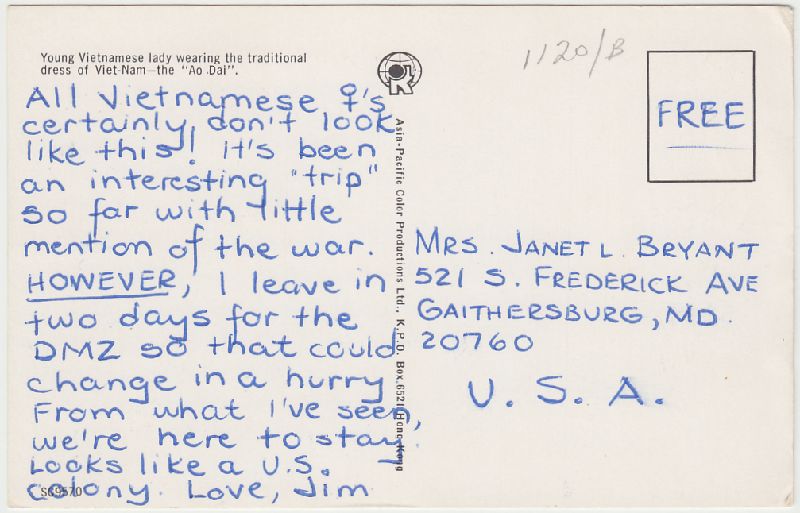 Young Vietnamese lady wearing the traditional
dress of Viet-Nam—the "Ao Dai".
All Vietnamese ♀'s
certainly don't look
like this! It's been
an interesting "trip"
so far with little
mention of the war.
HOWEVER, I leave in
two days for the
DMZ so that could
change in a hurry
From what I've seen,
we're here to stay.
Looks like a U.S.
colony. Love, Jim
S69570
Asia-Pacific Color Productions Ltd., K.P.O. Box 6521 Hong Kong
1120/B
FREE
MRS. JANET L. BRYANT
521 S. FREDERICK AVE
GAITHERSBURG, MD.
20760
U. S. A.